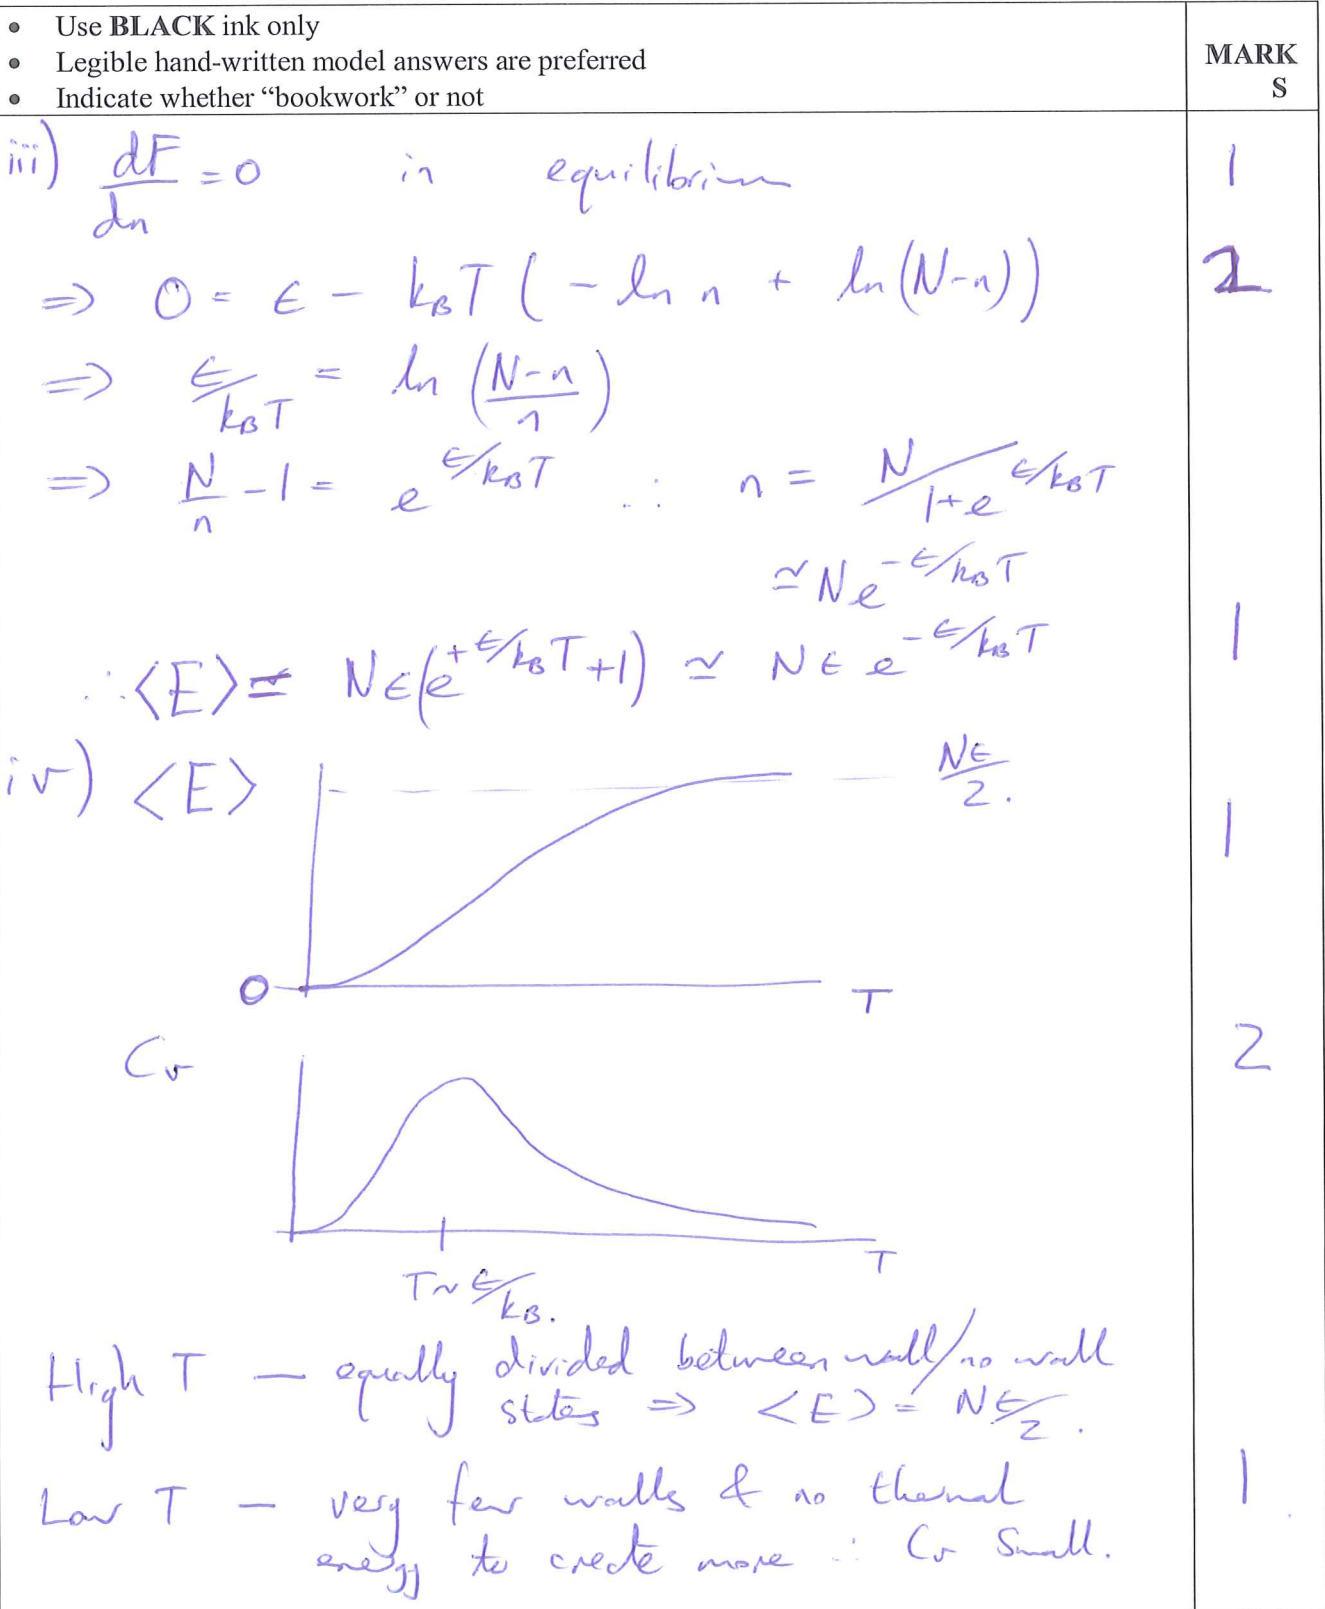 • Use BLACK ink only
• Legible hand-written model answers are preferred
• Indicate whether “bookwork” or not
MARK
S
iii) dF/dn = 0 in equilibrium 1
⇒ 0 = ϵ − k_BT (− ln n + ln(N−n)) 2
⇒ ϵ/k_BT = ln ((N−n)/n)
⇒ N/n − 1 = e^{ϵ/k_BT} ∴ n = N/(1+e^{ϵ/k_BT})
≃ Ne^{−ϵ/k_BT}
∴ <E> = Nϵ(e^{+ϵ/k_BT}+1) ≃ Nϵ e^{−ϵ/k_BT} 1
iv) <E> Nϵ/2. 1
0 T
Cv 2
T
T~ϵ/k_B.
High T — equally divided between wall/no wall
states ⇒ <E> = Nϵ/2.
Low T — very few walls & no thermal 1
energy to create more ∴ Cv Small.